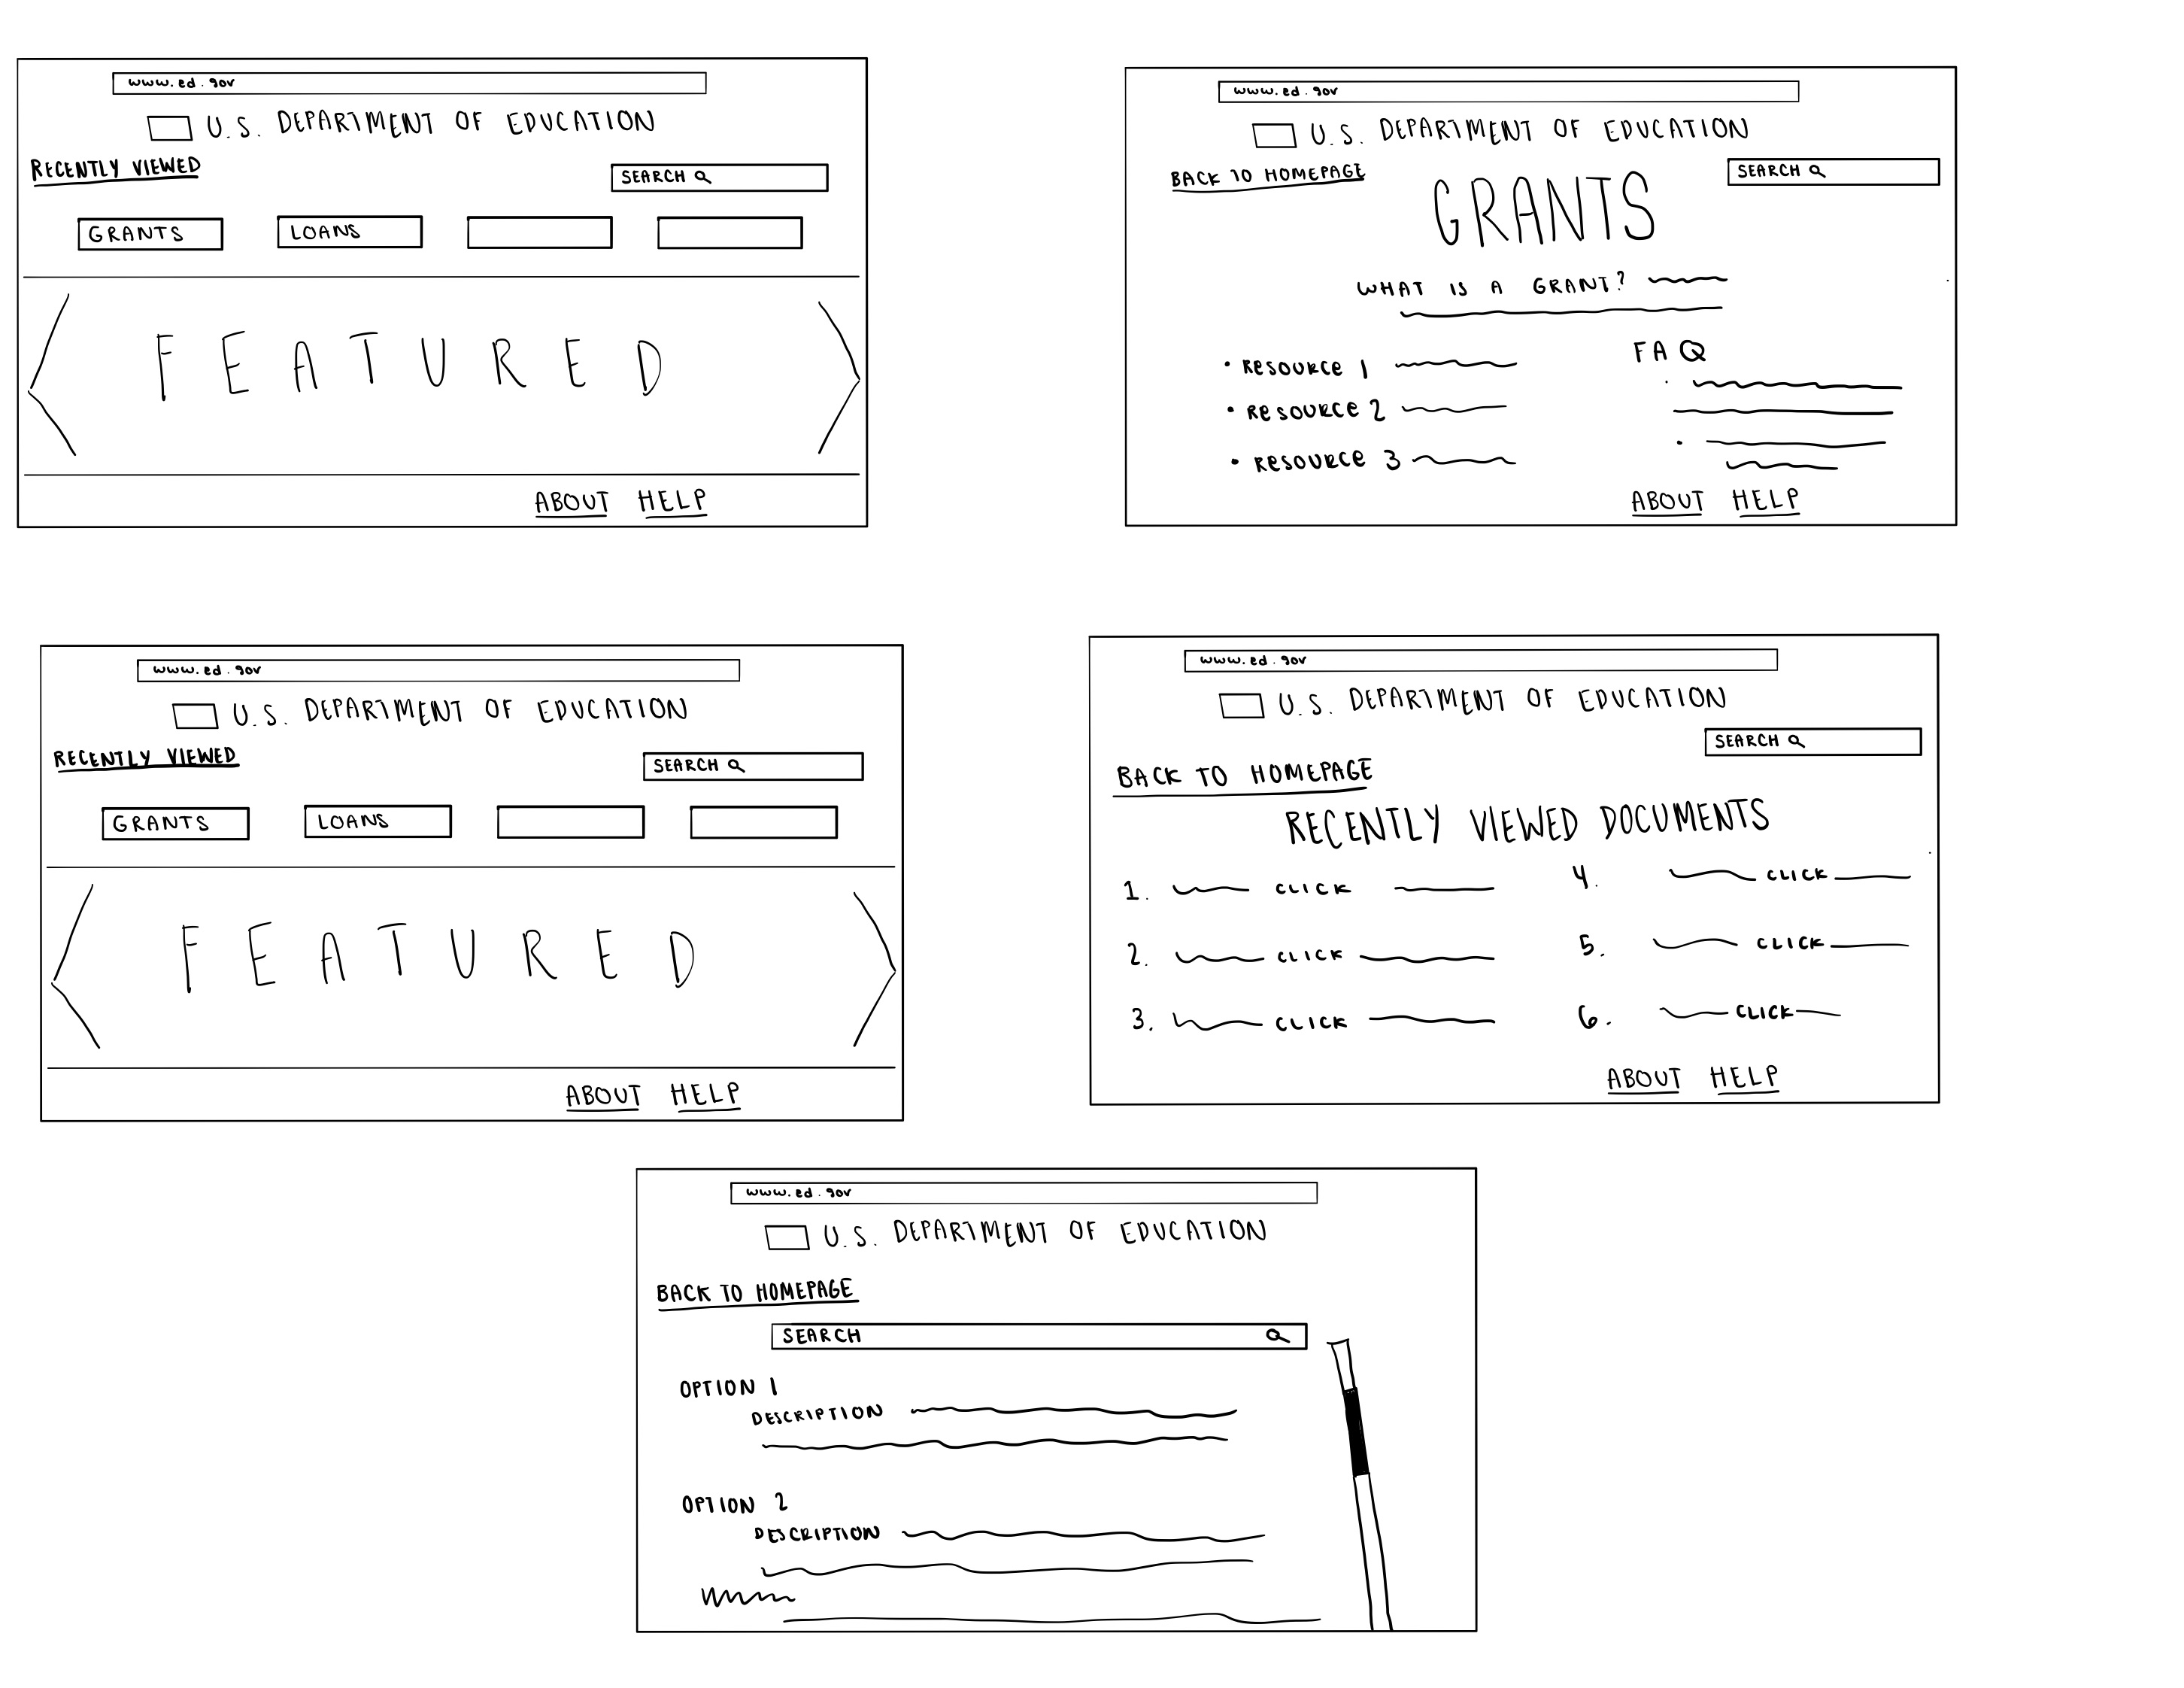 www.ed.gov
U.S. DEPARTMENT OF EDUCATION
RECENTLY VIEWED
SEARCH
GRANTS LOANS
FEATURED
ABOUT HELP
www.ed.gov
U.S. DEPARTMENT OF EDUCATION
BACK TO HOMEPAGE
SEARCH
GRANTS
WHAT IS A GRANT?
• RESOURCE 1
• RESOURCE 2
• RESOURCE 3
FAQ
ABOUT HELP
www.ed.gov
U.S. DEPARTMENT OF EDUCATION
RECENTLY VIEWED
SEARCH
GRANTS LOANS
FEATURED
ABOUT HELP
www.ed.gov
U.S. DEPARTMENT OF EDUCATION
SEARCH
BACK TO HOMEPAGE
RECENTLY VIEWED DOCUMENTS
1. CLICK
2. CLICK
3. CLICK
4. CLICK
5. CLICK
6. CLICK
ABOUT HELP
www.ed.gov
U.S. DEPARTMENT OF EDUCATION
BACK TO HOMEPAGE
SEARCH
OPTION 1
DESCRIPTION
OPTION 2
DESCRIPTION